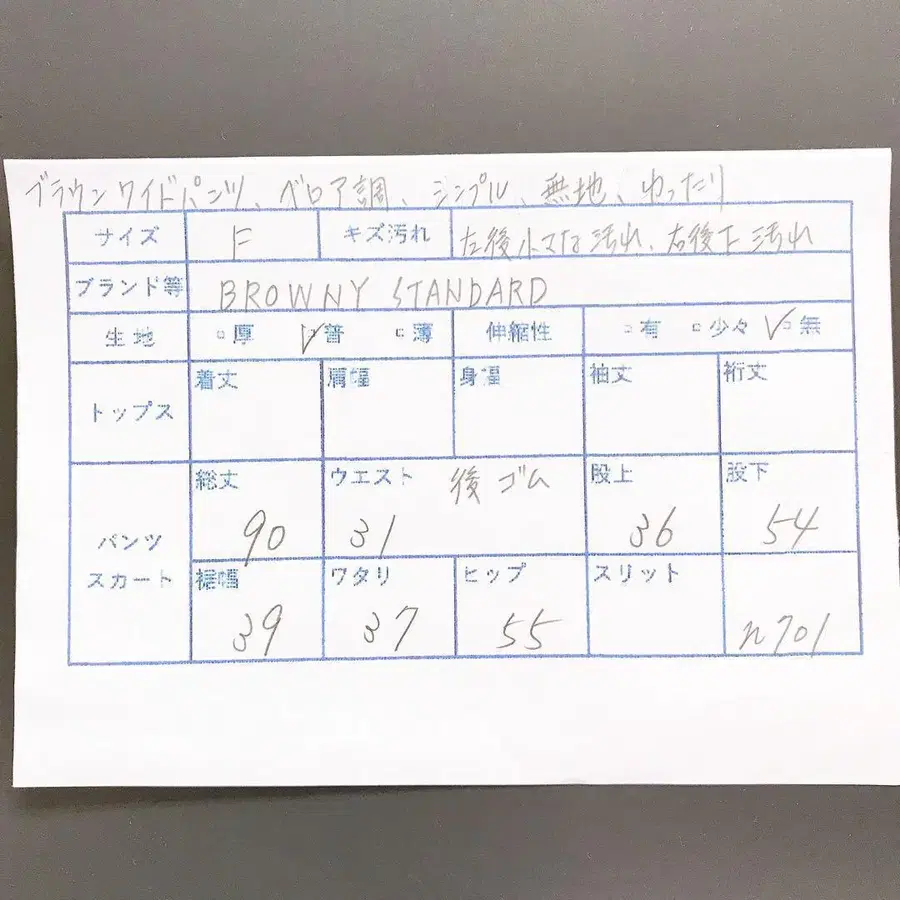 ブラウン ワイドパンツ、ベロア調、シンプル、無地、ゆったり
サイズ F キズ汚れ 左後小さな汚れ、右後下汚れ
ブランド等 BROWNY STANDARD
生地 □厚 ☑普 □薄 伸縮性 □有 □少々 ☑無
トップス 着丈 肩幅 身幅 袖丈 裄丈
パンツ スカート
総丈 90 ウエスト 31 後ゴム 股上 36 股下 54
裾幅 39 ワタリ 37 ヒップ 55 スリット n701